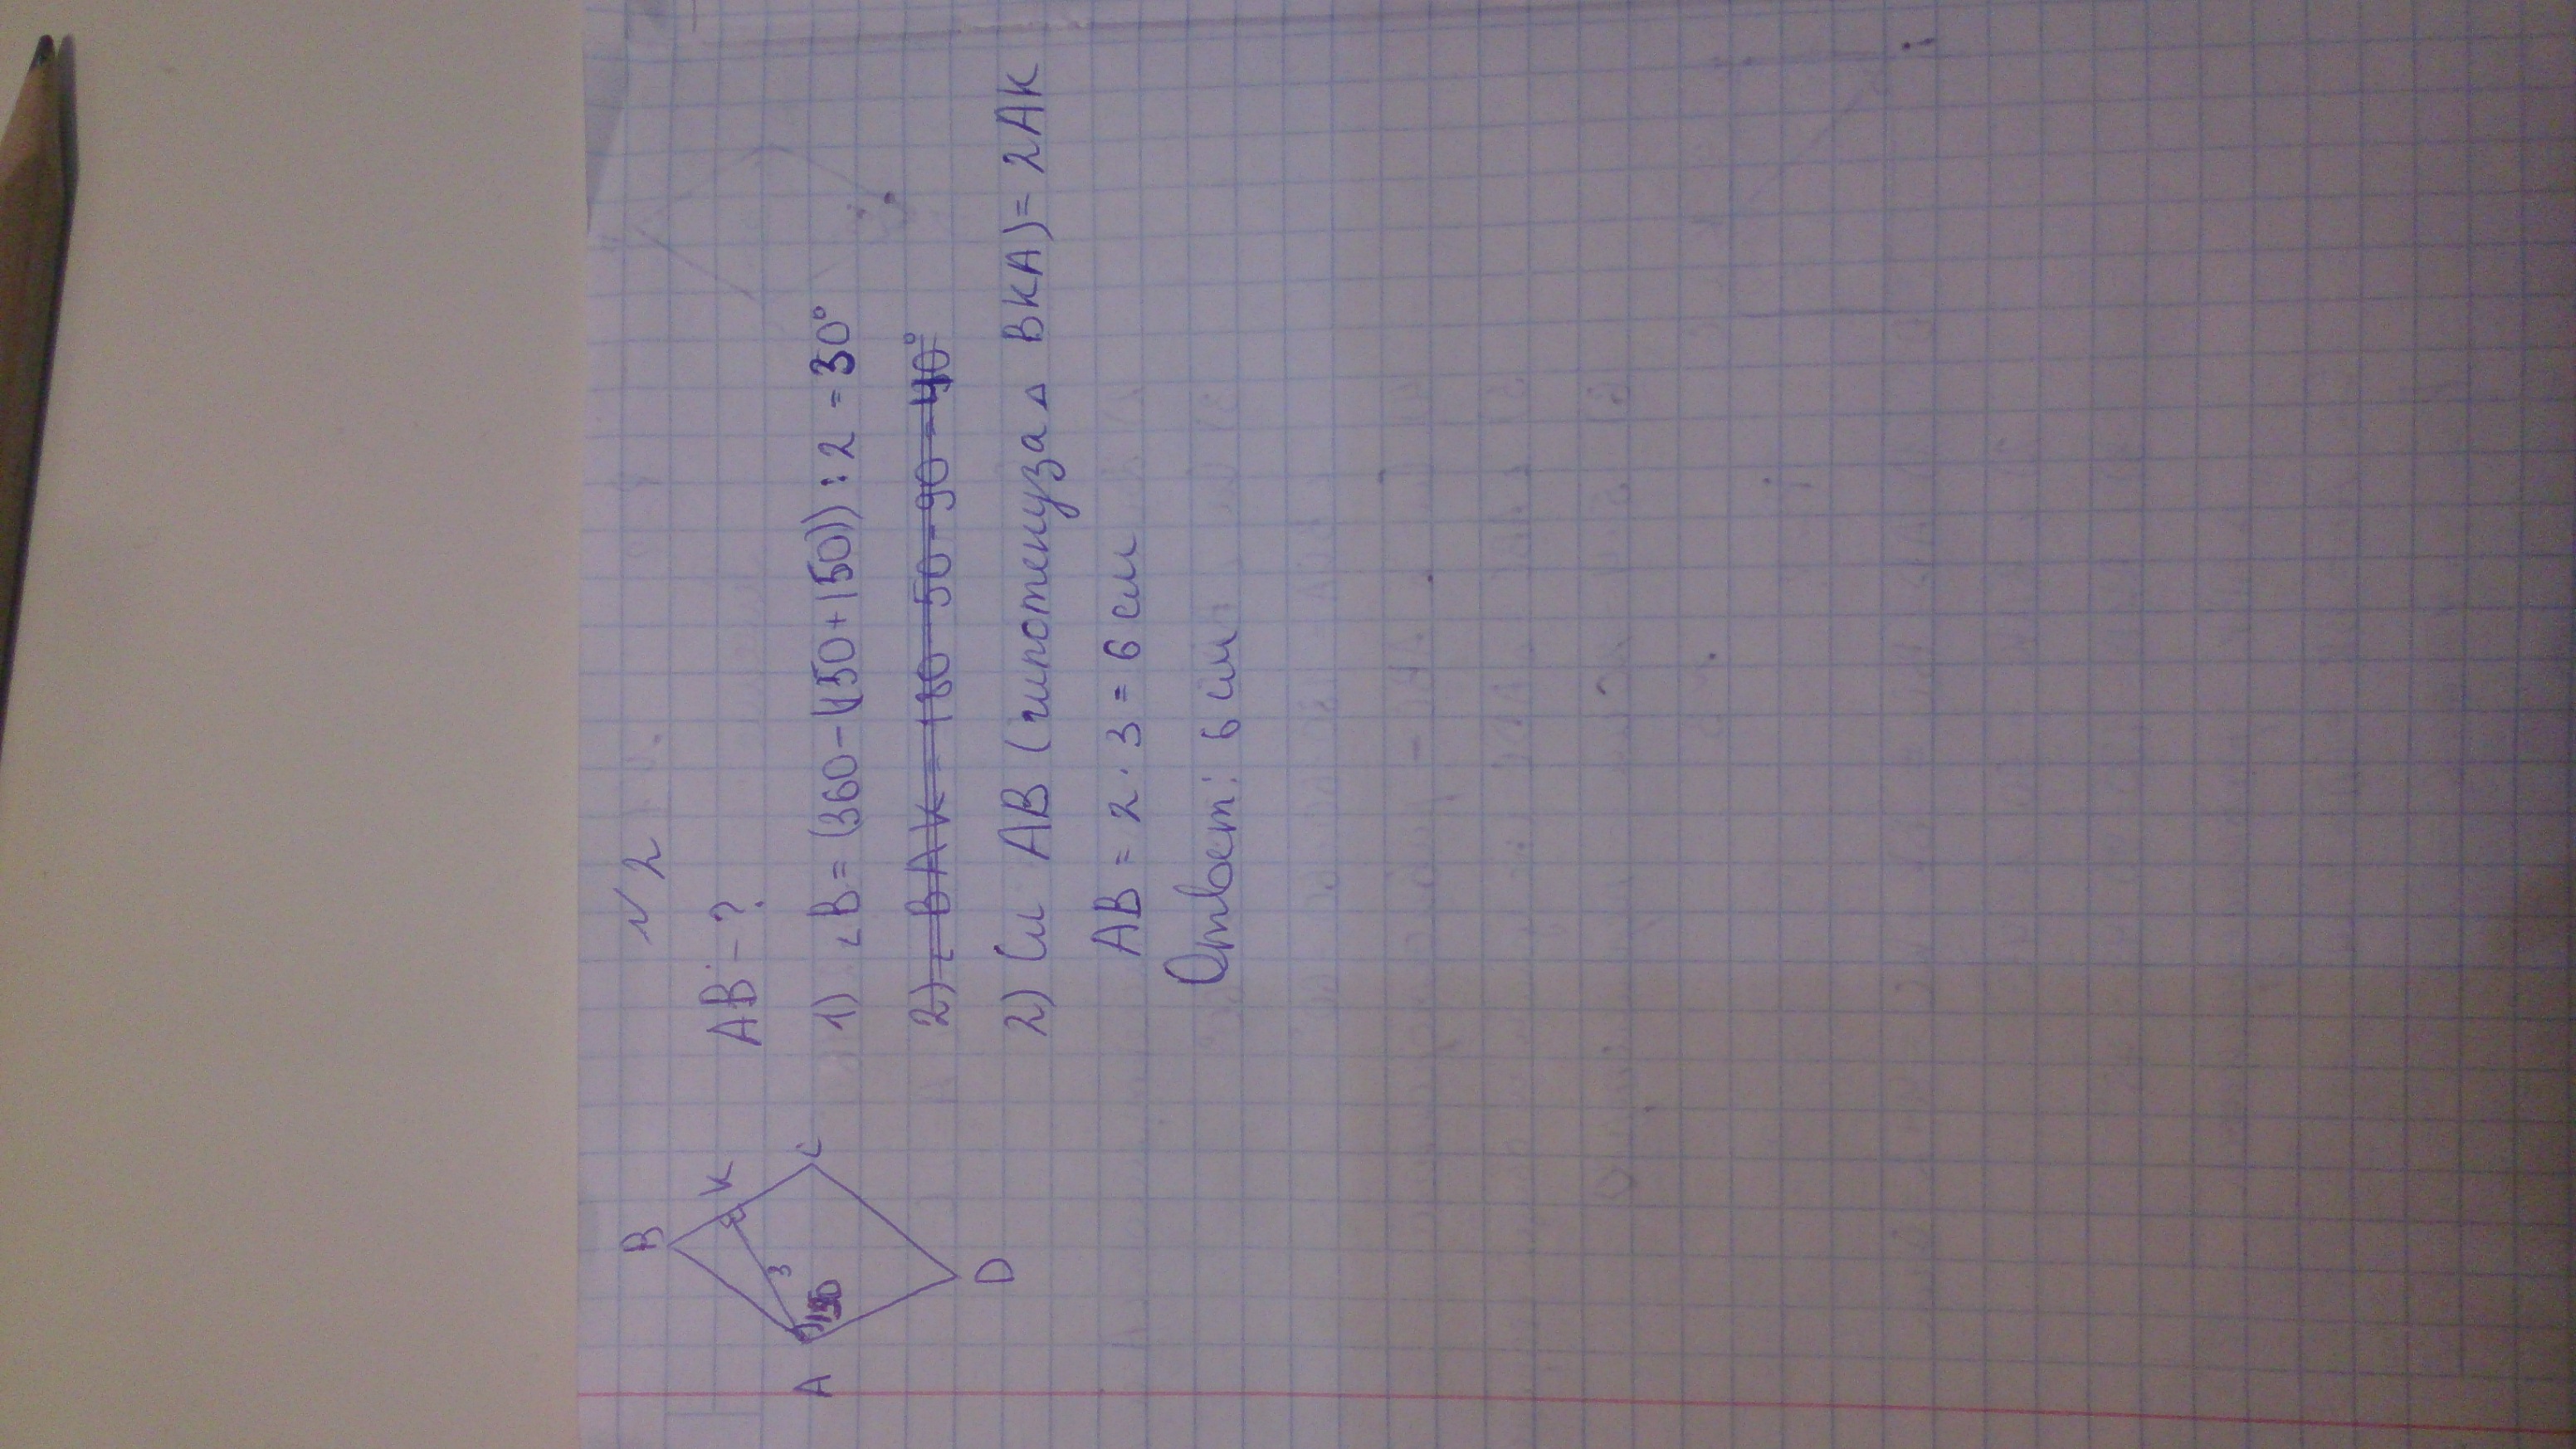 №2
B
K
A
150
3
C
D
AB - ?
1) ∠B = (360-(150+150)) : 2 = 30°
2) ∠BAK = 180-50-90=40°
2) См AB (гипотенуза △ BKA) = 2AK
AB = 2 · 3 = 6 см
Ответ: 6 см